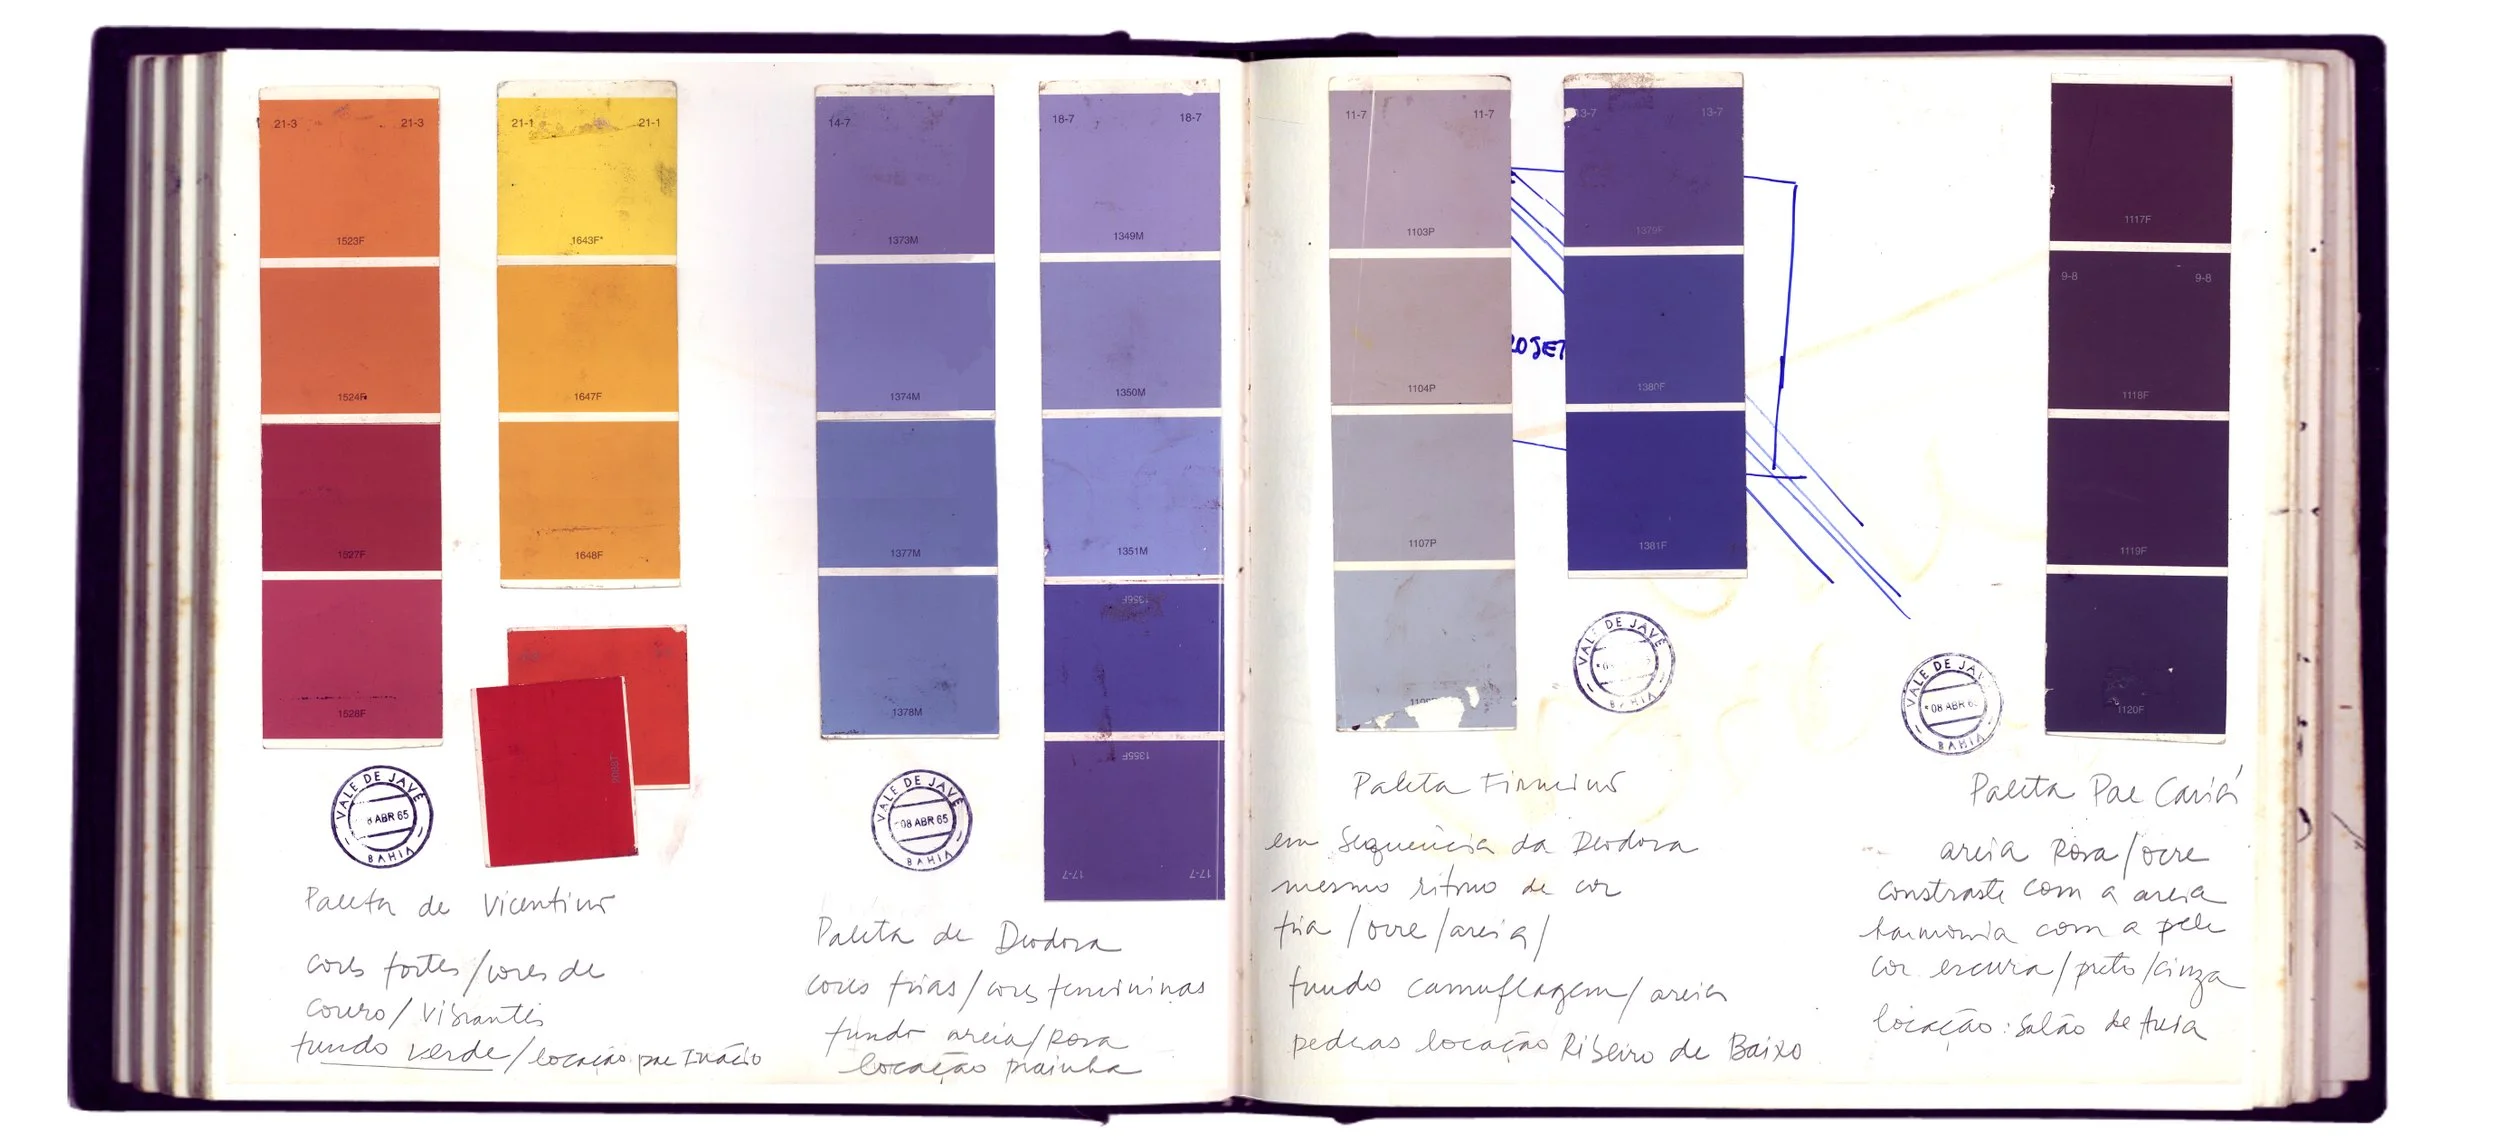 21-3 21-3
1523F
1524F
1527F
1528F
21-1 21-1
1643F*
1647F
1648F
VALE DE JAVÉ
8 ABR 65
BAHIA
Paleta de Vicentino
cores fortes/cores de
couro/vibrantes
fundo verde/locação pae Inácio
14-7
1373M
1374M
1377M
1378M
18-7 18-7
1349M
1350M
1351M
1356F
1355F
17-7 17-7
VALE DE JAVÉ
08 ABR 65
BAHIA
Paleta de Deodora
cores frias/cores femininas
fundo areia/rosa
locação prainha
11-7 11-7
1103P
1104P
1107P
ROJET
13-7 13-7
1379F
1380F
1381F
VALE DE JAVÉ
BAHIA
Paleta Firmino
em sequência da Deodora
mesmo ritmo de cor
fria/ocre/areia/
fundo camuflagem/areia
pedras locação Ribeiro de Baixo
1117F
9-8 9-8
1118F
1119F
1120F
VALE DE JAV
08 ABR 6
BAHIA
Paleta Pae Cariá
areia Rosa/ocre
constraste com a areia
harmonia com a pele
cor escura/preto/cinza
locação: Salão de Areia